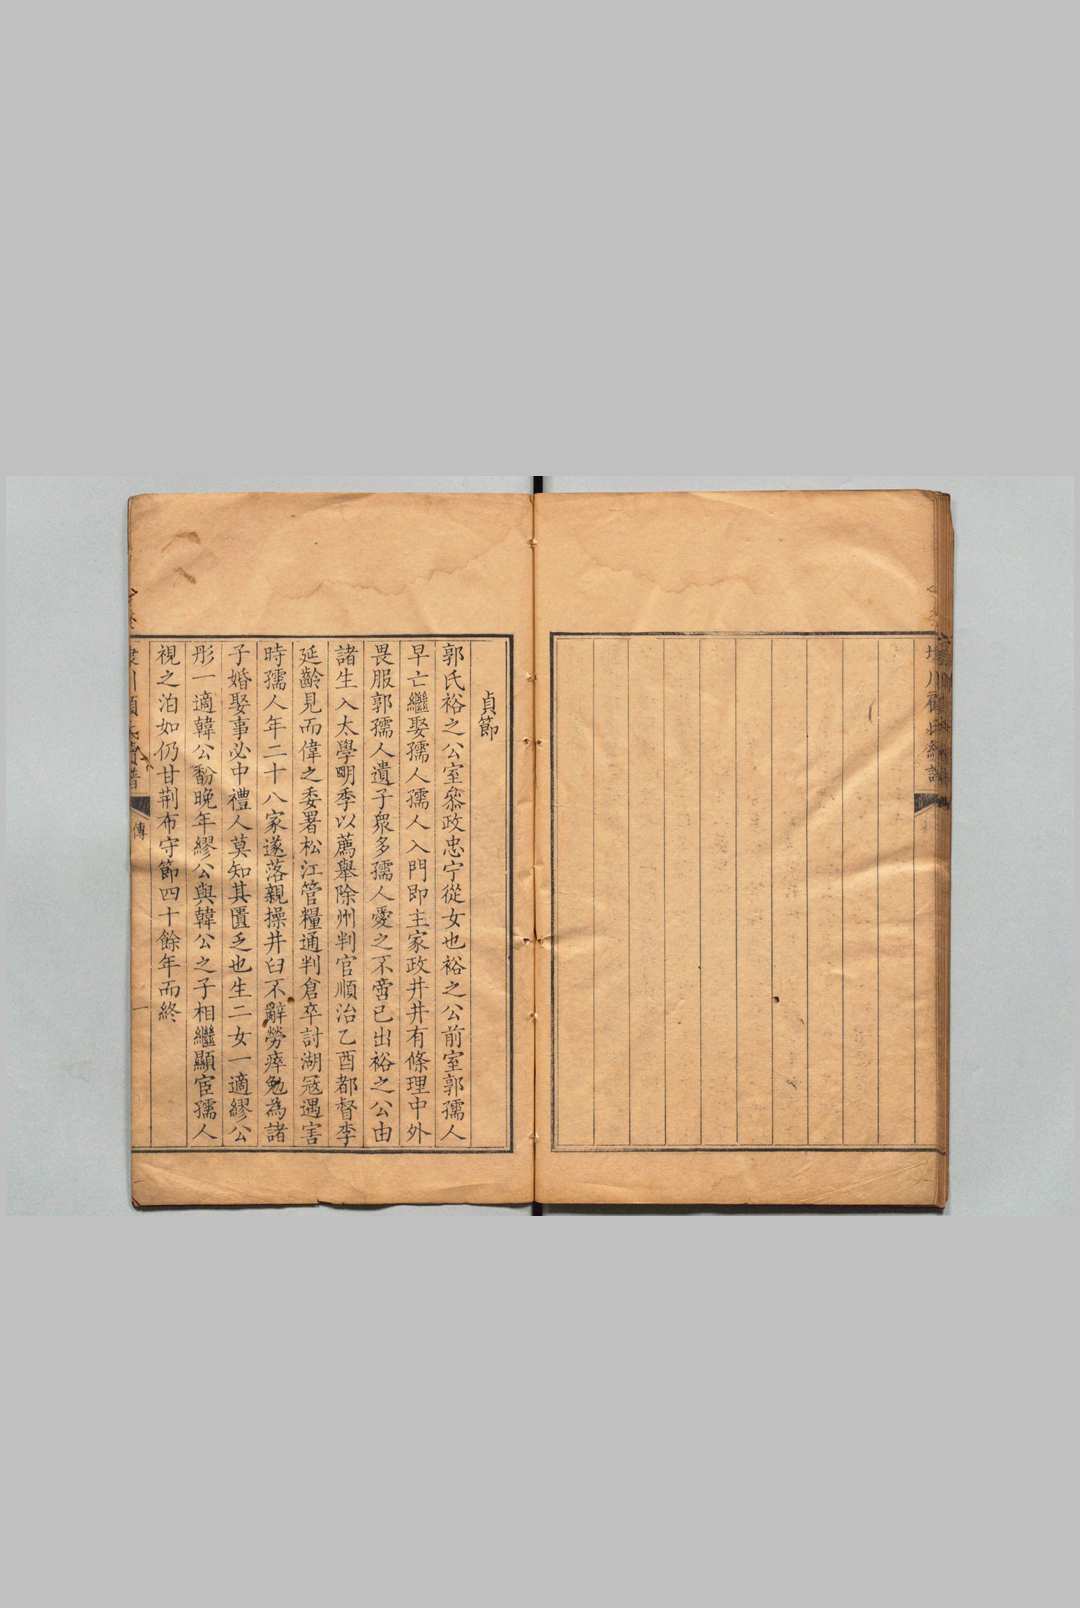 貞節
郭氏裕之公室叅政忠宁從女也裕之公前室郭孺人
早亡繼娶孺人孺人入門即主家政井井有條理中外
畏服郭孺人遺子衆多孺人愛之不啻已出裕之公由
諸生入太學明季以薦舉除州判官順治乙酉都督李
延齡見而偉之委署松江管糧通判倉卒討湖冦遇害
時孺人年二十八家遂落親操井臼不辭勞瘁勉為諸
子婚娶事必中禮人莫知其匱乏也生二女一適繆公
彤一適韓公馚晚年繆公與韓公之子相繼顯宦孺人
視之泊如仍甘荆布守節四十餘年而終
傳
一